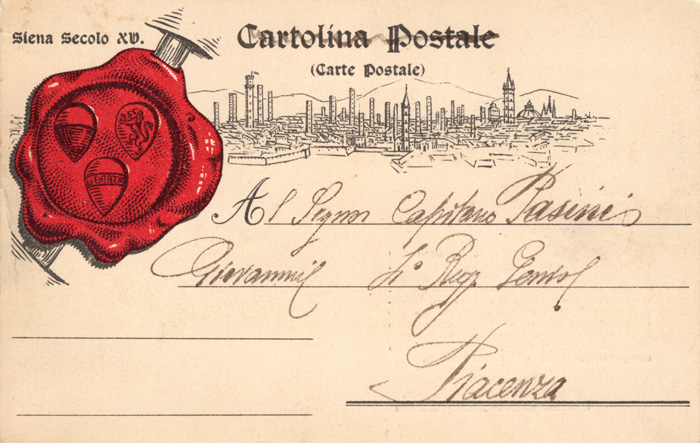 Siena Secolo XV.
Cartolina Postale
(Carte Postale)
LIBERTAS
Al Signor Capitano Pasini
Giovanni 4° Regg Genio
Piacenza